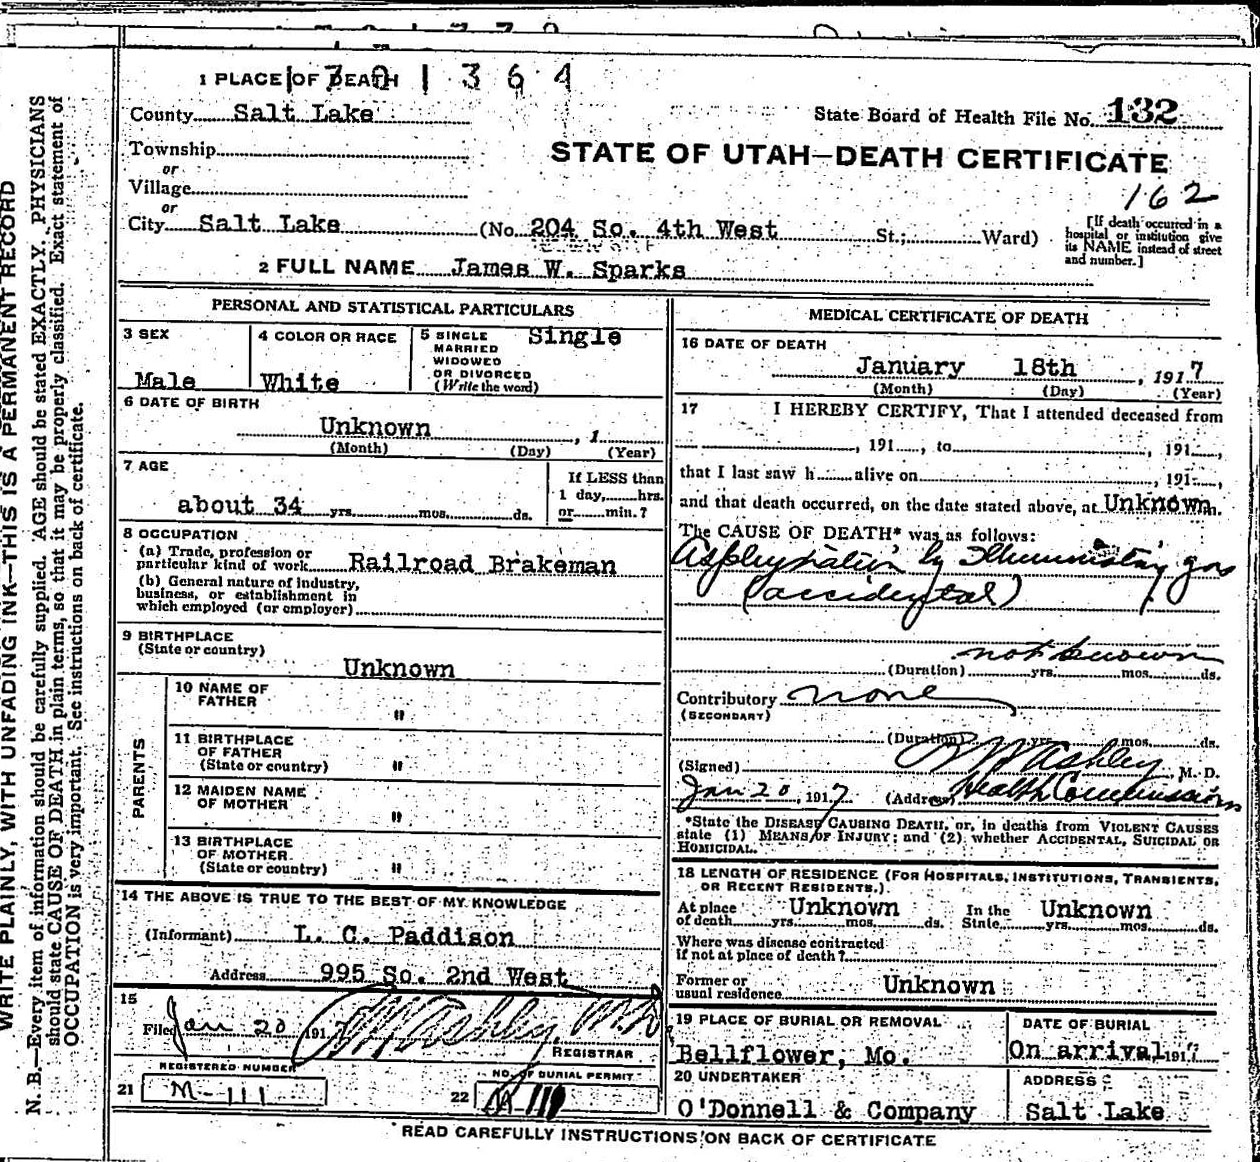 1 PLACE OF DEATH
1701364
County Salt Lake
State Board of Health File No. 132
Township
or
Village
or
STATE OF UTAH—DEATH CERTIFICATE
162
City Salt Lake (No. 204 So. 4th West St.; Ward)
[If death occurred in a
hospital or institution give
its NAME instead of street
and number.]
2 FULL NAME James W. Sparks
PERSONAL AND STATISTICAL PARTICULARS
3 SEX
Male
4 COLOR OR RACE
White
5 SINGLE
MARRIED
WIDOWED
OR DIVORCED
(Write the word)
Single
6 DATE OF BIRTH
Unknown , 1
(Month) (Day) (Year)
7 AGE
about 34 yrs. mos. ds.
If LESS than
1 day, hrs.
or min.?
8 OCCUPATION
(a) Trade, profession or
particular kind of work Railroad Brakeman
(b) General nature of industry,
business, or establishment in
which employed (or employer)
9 BIRTHPLACE
(State or country)
Unknown
PARENTS
10 NAME OF
FATHER
"
11 BIRTHPLACE
OF FATHER
(State or country) "
12 MAIDEN NAME
OF MOTHER
"
13 BIRTHPLACE
OF MOTHER
(State or country) "
14 THE ABOVE IS TRUE TO THE BEST OF MY KNOWLEDGE
(Informant) L. C. Paddison
Address 995 So. 2nd West
15
Filed Jan 20 1917 Ashley, M.D.
REGISTRAR
REGISTERED NUMBER
21 M-111
NO. OF BURIAL PERMIT
22 M 111
MEDICAL CERTIFICATE OF DEATH
16 DATE OF DEATH
January 18th , 1917
(Month) (Day) (Year)
17 I HEREBY CERTIFY, That I attended deceased from
, 191 , to , 191 ,
that I last saw h alive on , 191 ,
and that death occurred, on the date stated above, at Unknown m.
The CAUSE OF DEATH* was as follows:
Asphyxiation by Illuminating gas
(accidental)
not known
(Duration) yrs. mos. ds.
Contributory none
(SECONDARY)
(Duration) yrs. mos. ds.
(Signed) Ashley , M. D.
Jan 20, 1917 (Address) Health Commissioner
*State the DISEASE CAUSING DEATH, or, in deaths from VIOLENT CAUSES
state (1) MEANS OF INJURY; and (2) whether ACCIDENTAL, SUICIDAL OR
HOMICIDAL.
18 LENGTH OF RESIDENCE (FOR HOSPITALS, INSTITUTIONS, TRANSIENTS,
OR RECENT RESIDENTS.)
At place
of death Unknown yrs. mos. ds. In the
State Unknown yrs. mos. ds.
Where was disease contracted
If not at place of death?
Former or
usual residence Unknown
19 PLACE OF BURIAL OR REMOVAL
Bellflower, Mo.
DATE OF BURIAL
On arrival 1917
20 UNDERTAKER
O'Donnell & Company
ADDRESS
Salt Lake
READ CAREFULLY INSTRUCTIONS ON BACK OF CERTIFICATE
WRITE PLAINLY, WITH UNFADING INK—THIS IS A PERMANENT RECORD
N. B.—Every item of information should be carefully supplied. AGE should be stated EXACTLY. PHYSICIANS
should state CAUSE OF DEATH in plain terms, so that it may be properly classified. Exact statement of
OCCUPATION is very important. See instructions on back of certificate.